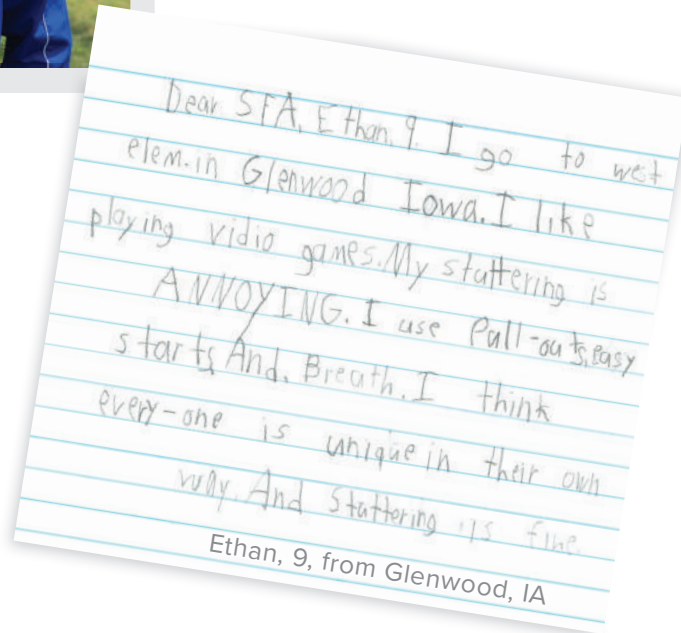 Dear SFA, Ethan, 9. I go to west
elem. in Glenwood Iowa. I like
playing vidio games. My stuttering is
ANNOYING. I use Pull-outs, easy
starts, And, Breath. I think
every-one is unique in their own
way. And Stuttering is fine.
Ethan, 9, from Glenwood, IA